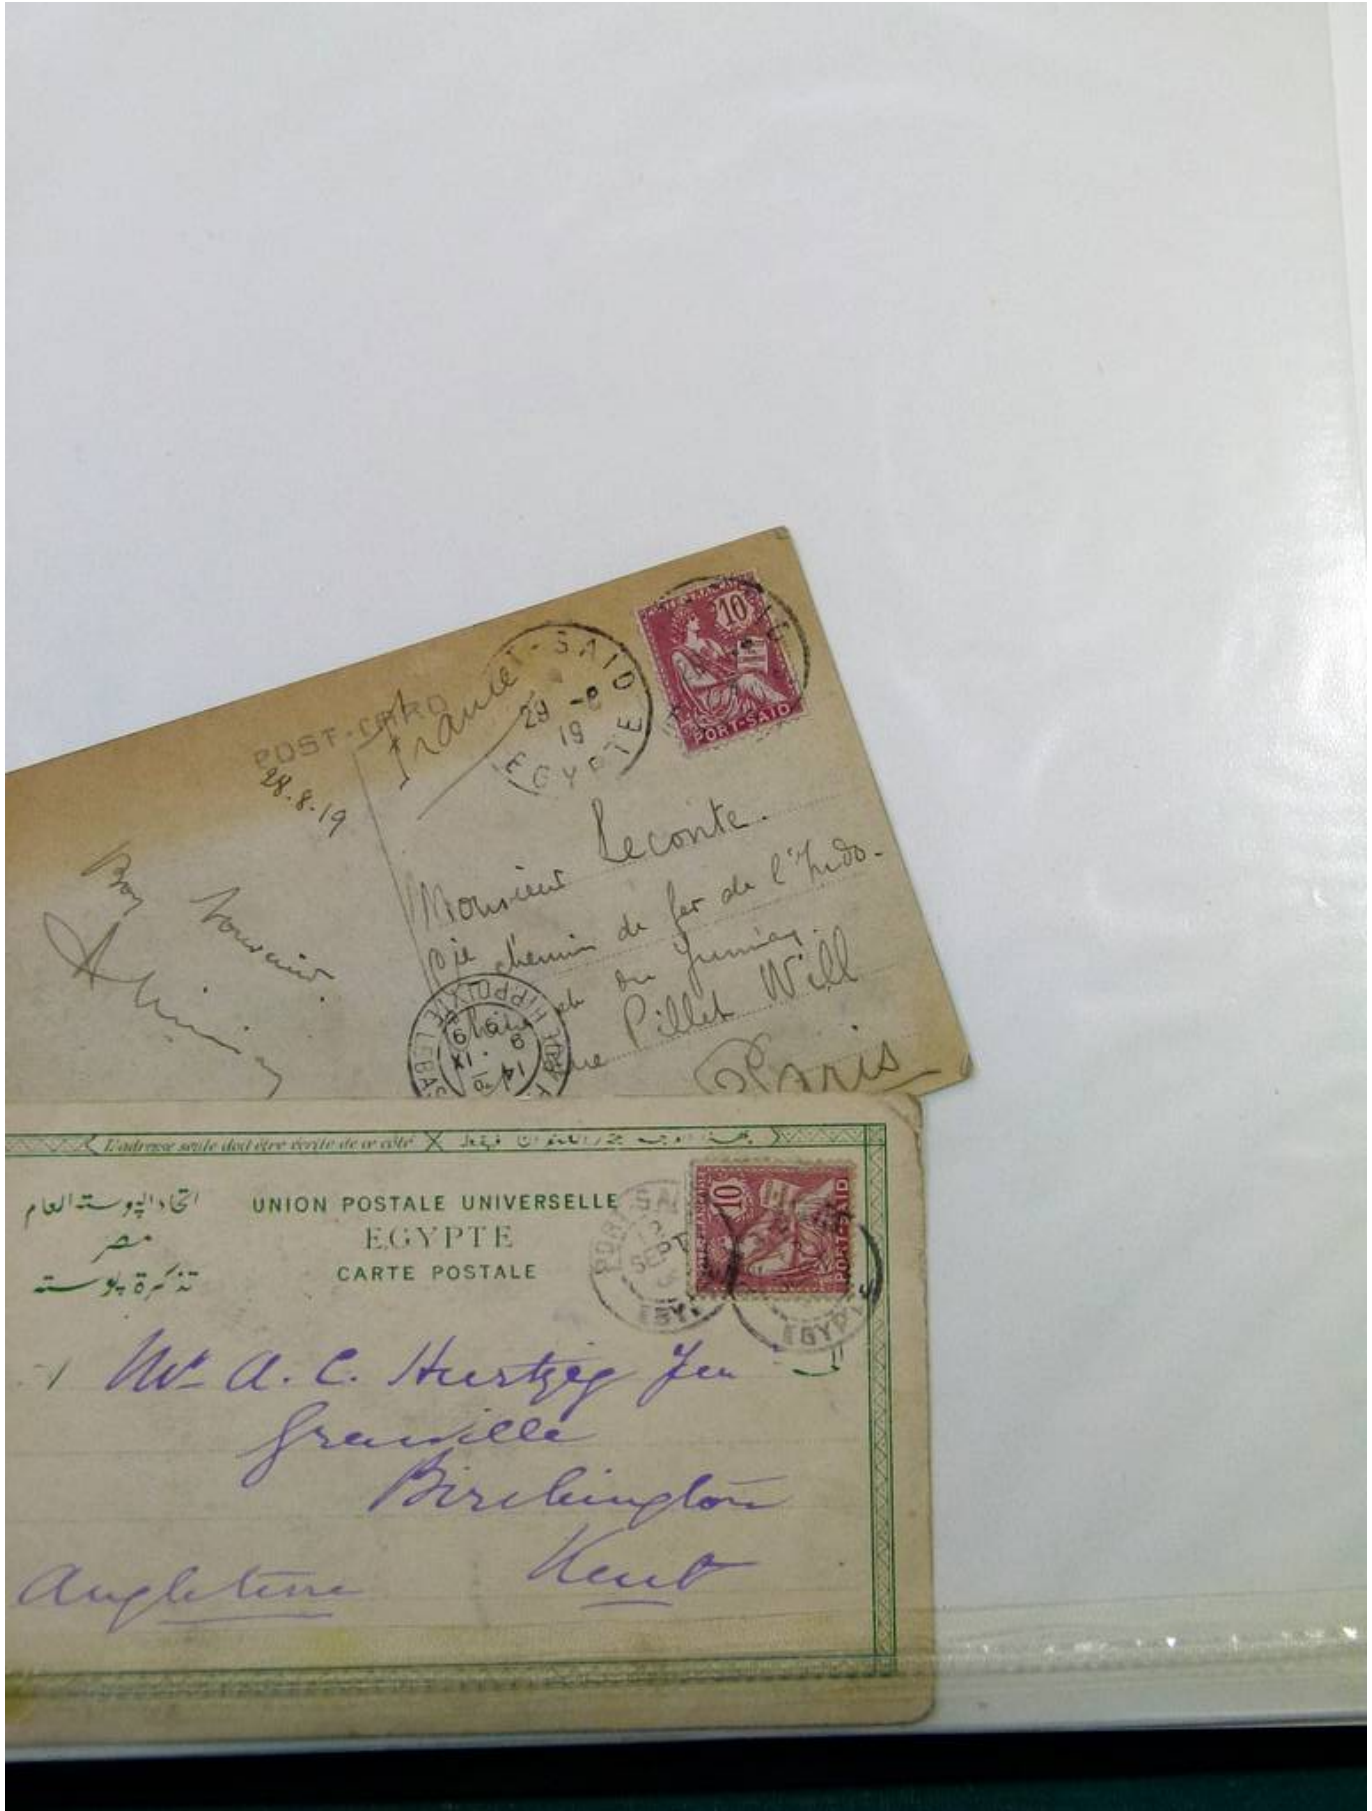 POST-CARD
28.8.19
France
PORT-SAID
29 - 8
19
EGYPTE
10
PORT-SAID
Bon Souvenir
Monsieur Leconte.
Cie chemin de fer de l'Indo-
du Yunnan.
rue Pillet Will
Paris
HIPPOLYTE LEBAS
L'adresse seule doit être écrite de ce côté
اتحاد البوستة العام
مصر
تذكرة بوستة
UNION POSTALE UNIVERSELLE
EGYPTE
CARTE POSTALE
SEPT
10
PORT-SAID
EGYPTE
الى
Mr A. C. Hurtzig
Grenville
Birchington
Kent
Angleterre